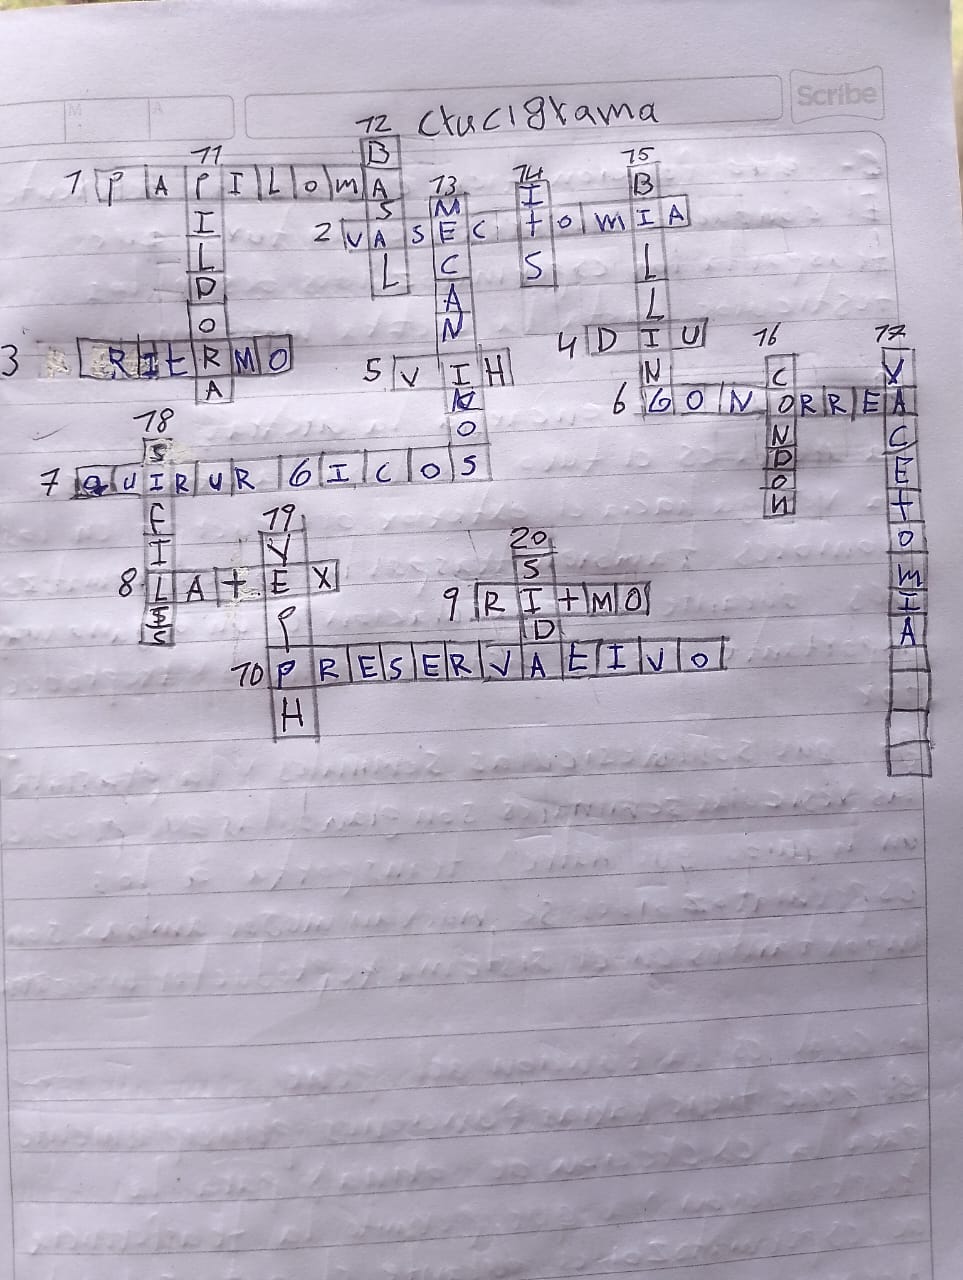 M A Scribe
Crucigrama
1 PAPILOMA
2 VASECTOMIA
3 RITRMO
4 DIU
5 VIH
6 GONORREA
7 QUIRURGICOS
8 LATEX
9 RITMO
10 PRESERVATIVO
11 PILDORA
12 BASAL
13 MECANINOS
14 ITS
15 BILLING
16 CONDON
17 VACETOMIA
18 SIFILSS
19 VEPPH
20 SIDA